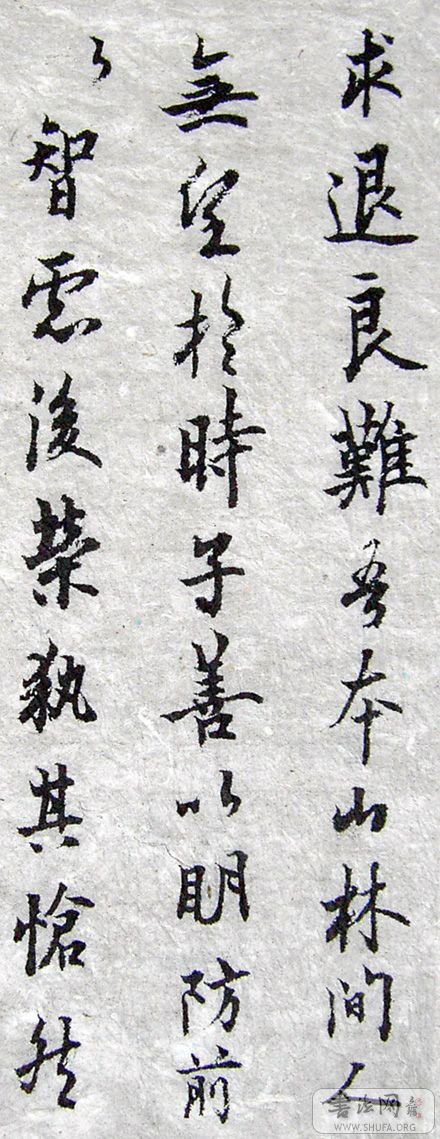 求退良難吾本山林間人
無望於時子善以明防前
〻智慮後榮執其愴然
書法网
WWW.SHUFA.ORG